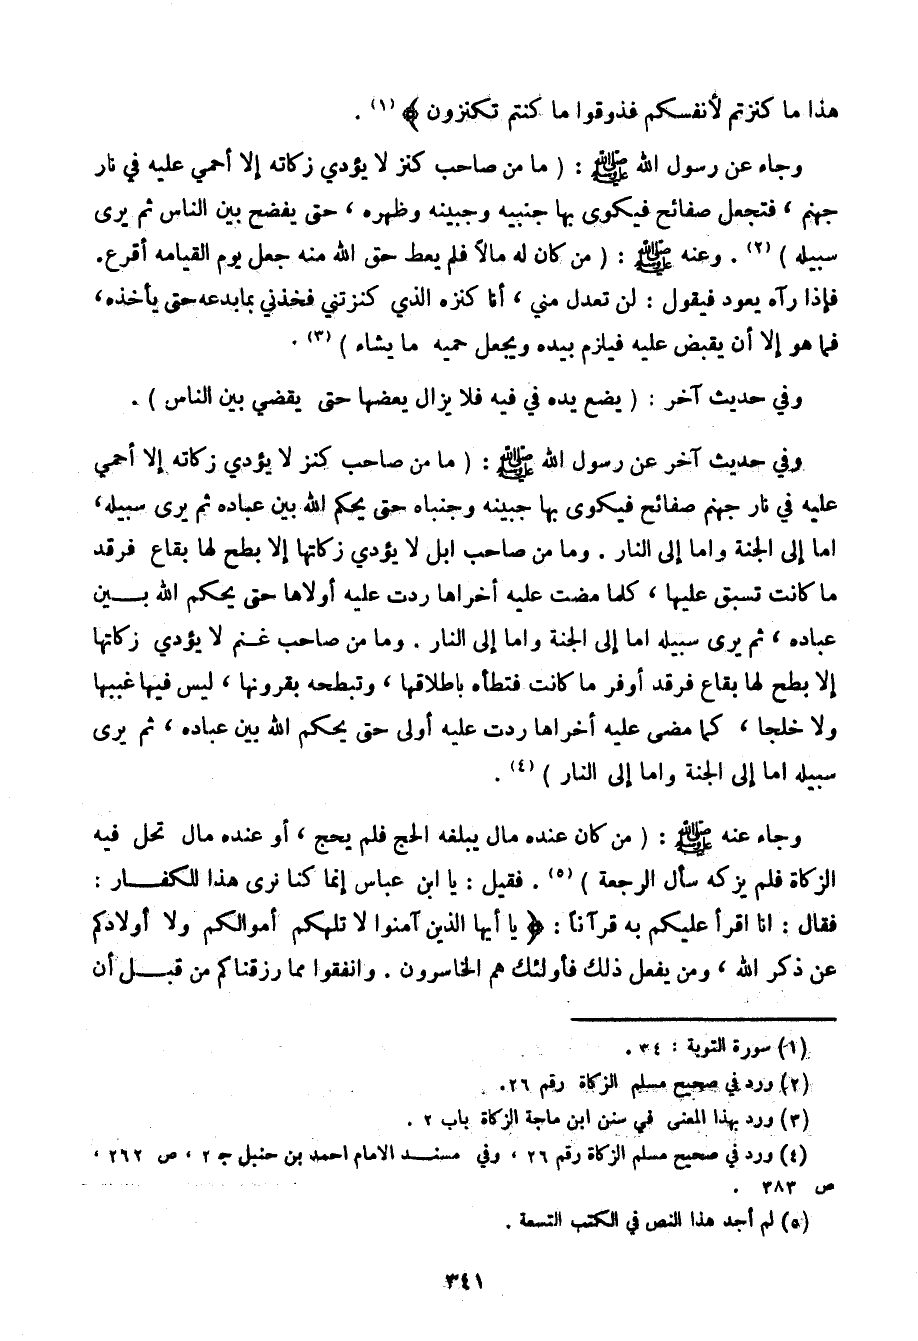 هذا ما كنزتم لأنفسكم فذوقوا ما كنتم تكنزون ﴾ (١) .
وجاء عن رسول الله ﷺ : ( ما من صاحب كنز لا يؤدي زكاته إلا أحمي عليه في نار
جهنم ، فتجعل صفائح فيكوى بها جنبيه وجبينه وظهره ، حتى يفضح بين الناس ثم يرى
سبيله ) (٢) . وعنه ﷺ : ( من كان له مالاً فلم يعط حق الله منه جعل يوم القيامه أقرع.
فإذا رآه يعود فيقول : لن تعدل مني ، أنا كنزه الذي كنزتني فخذني بمابدعه حتى يأخذه،
فما هو إلا أن يقبض عليه فيلزم بيده ويجعل حميه ما يشاء ) (٣) .
وفي حديث آخر : ( يضع يده في فيه فلا يزال يعضها حتى يقضي بين الناس ) .
وفي حديث آخر عن رسول الله ﷺ : ( ما من صاحب كنز لا يؤدي زكاته إلا أحمي
عليه في نار جهنم صفائح فيكوى بها جبينه وجنباه حتى يحكم الله بين عباده ثم يرى سبيله،
اما إلى الجنة واما إلى النار . وما من صاحب ابل لا يؤدي زكاتها إلا بطح لها بقاع فرقد
ما كانت تسبق عليها ، كلما مضت عليه أخراها ردت عليه أولاها حتى يحكم الله بـــين
عباده ، ثم يرى سبيله اما إلى الجنة واما إلى النار . وما من صاحب غنم لا يؤدي زكاتها
إلا بطح لها بقاع فرقد أوفر ما كانت فتطأه باطلاقها ، وتبطحه بقرونها ، ليس فيها غيبها
ولا خلجا ، كما مضى عليه أخراها ردت عليه أولى حتى يحكم الله بين عباده ، ثم يرى
سبيله اما إلى الجنة واما إلى النار ) (٤) .
وجاء عنه ﷺ : ( من كان عنده مال يبلغه الحج فلم يحج ، أو عنده مال تحل فيه
الزكاة فلم يزكه سأل الرجعة ) (٥) . فقيل : يا ابن عباس إنما كنا نرى هذا للكفـــار :
فقال : انا اقرأ عليكم به قرآناً : ﴿ يا أيها الذين آمنوا لا تلهكم أموالكم ولا أولادكم
عن ذكر الله ، ومن يفعل ذلك فأولئك هم الخاسرون . وانفقوا مما رزقناكم من قبـــل أن
(١) سورة التوبة : ٣٤ .
(٢) ورد في صحيح مسلم الزكاة رقم ٢٦ .
(٣) ورد بهذا المعنى في سنن ابن ماجة الزكاة باب ٢ .
(٤) ورد في صحيح مسلم الزكاة رقم ٢٦ ، وفي مسنـــد الامام احمد بن حنبل ج ٢ ، ص ٢٦٢ ،
ص ٣٨٣ .
(٥) لم أجد هذا النص في الكتب التسعة .
٣٤١